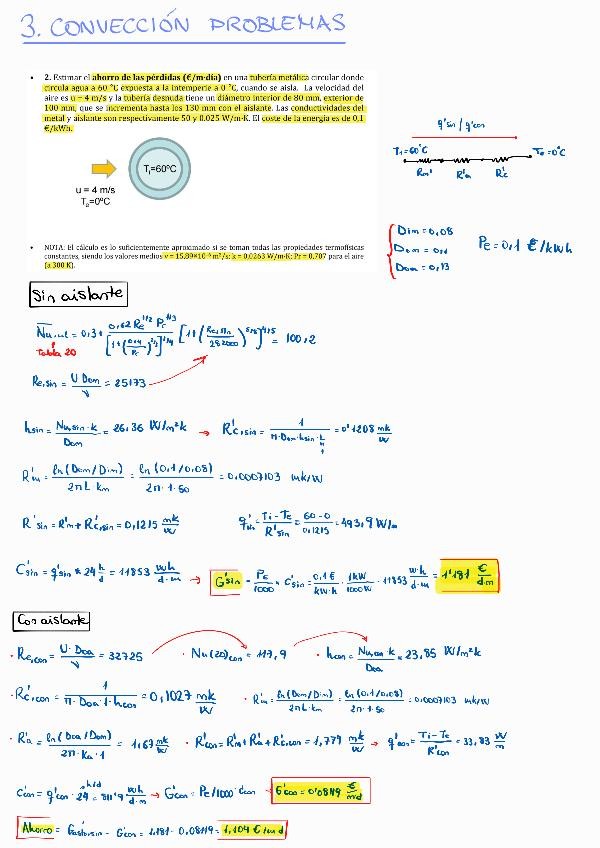 3. CONVECCIÓN PROBLEMAS
• 2. Estimar el ahorro de las pérdidas (€/m·día) en una tubería metálica circular donde
circula agua a 60 °C expuesta a la intemperie a 0 °C, cuando se aísla. La velocidad del
aire es u = 4 m/s y la tubería desnuda tiene un diámetro interior de 80 mm, exterior de
100 mm, que se incrementa hasta los 130 mm con el aislante. Las conductividades del
metal y aislante son respectivamente 50 y 0.025 W/m·K. El coste de la energía es de 0,1
€/kWh.
q'sin / q'con
T1=60°C
Te=0°C
Rm' R'a R'c
Ti=60ºC
u = 4 m/s
Ta=0ºC
Dim = 0,08
Dom = 0,1
Doa = 0,13
Pe = 0,1 €/kWh
• NOTA: El cálculo es lo suficientemente aproximado si se toman todas las propiedades termofísicas
constantes, siendo los valores medios ν = 15,89×10⁻⁶ m²/s; k = 0,0263 W/m·K; Pr = 0.707 para el aire
(a 300 K).
Sin aislante
Nu,cil = 0,3 + 0,62 Re^1/2 Pr^1/3 / [1+(0,4/Pr)^2/3]^1/4 [1+(Re,sin/282000)^5/8]^4/5 = 100,2
tabla 20
Re,sin = U Dom / ν = 25173
hsin = Nu,sin · k / Dom = 26,36 W/m²k → R'c,sin = 1 / π·Dom·hsin·L = 0'1208 mk/W
1
R'm = ln(Dom/Dim) / 2πL km = ln(0,1/0,08) / 2π·1·50 = 0,0007103 mk/W
R'sin = R'm + R'c,sin = 0,1215 mk/W q'sin = Ti - Te / R'sin = 60-0 / 0,1215 = 493,9 W/m
C'sin = q'sin * 24 h/d = 11853 Wh/d·m → G'sin = Pe/1000 * C'sin = 0,1 €/kW·h · 1kW/1000W · 11853 W·h/d·m = 1'181 €/d·m
Con aislante
• Re,con = U·Doa / ν = 32725 • Nu(20)con = 117,9 • hcon = Nu,con·k / Doa = 23,85 W/m²k
• R'c,con = 1 / π·Doa·1·hcon = 0,1027 mk/W • R'm = ln(Dom/Dim) / 2πL·km = ln(0,1/0,08) / 2π·1·50 = 0,0007103 mk/W
• R'a = ln(Doa/Dom) / 2π·Ka·1 = 1,67 mk/W • R'con = R'm + R'a + R'c,con = 1,774 mk/W → q'con = Ti - Te / R'con = 33,83 W/m
C'con = q'con · 24 h/d = 811'9 Wh/d·m → G'con = Pe/1000 · C'con → G'con = 0'08119 €/m·d
Ahorro = G'sin - G'con = 1,181 - 0,08119 = 1,104 €/m·d